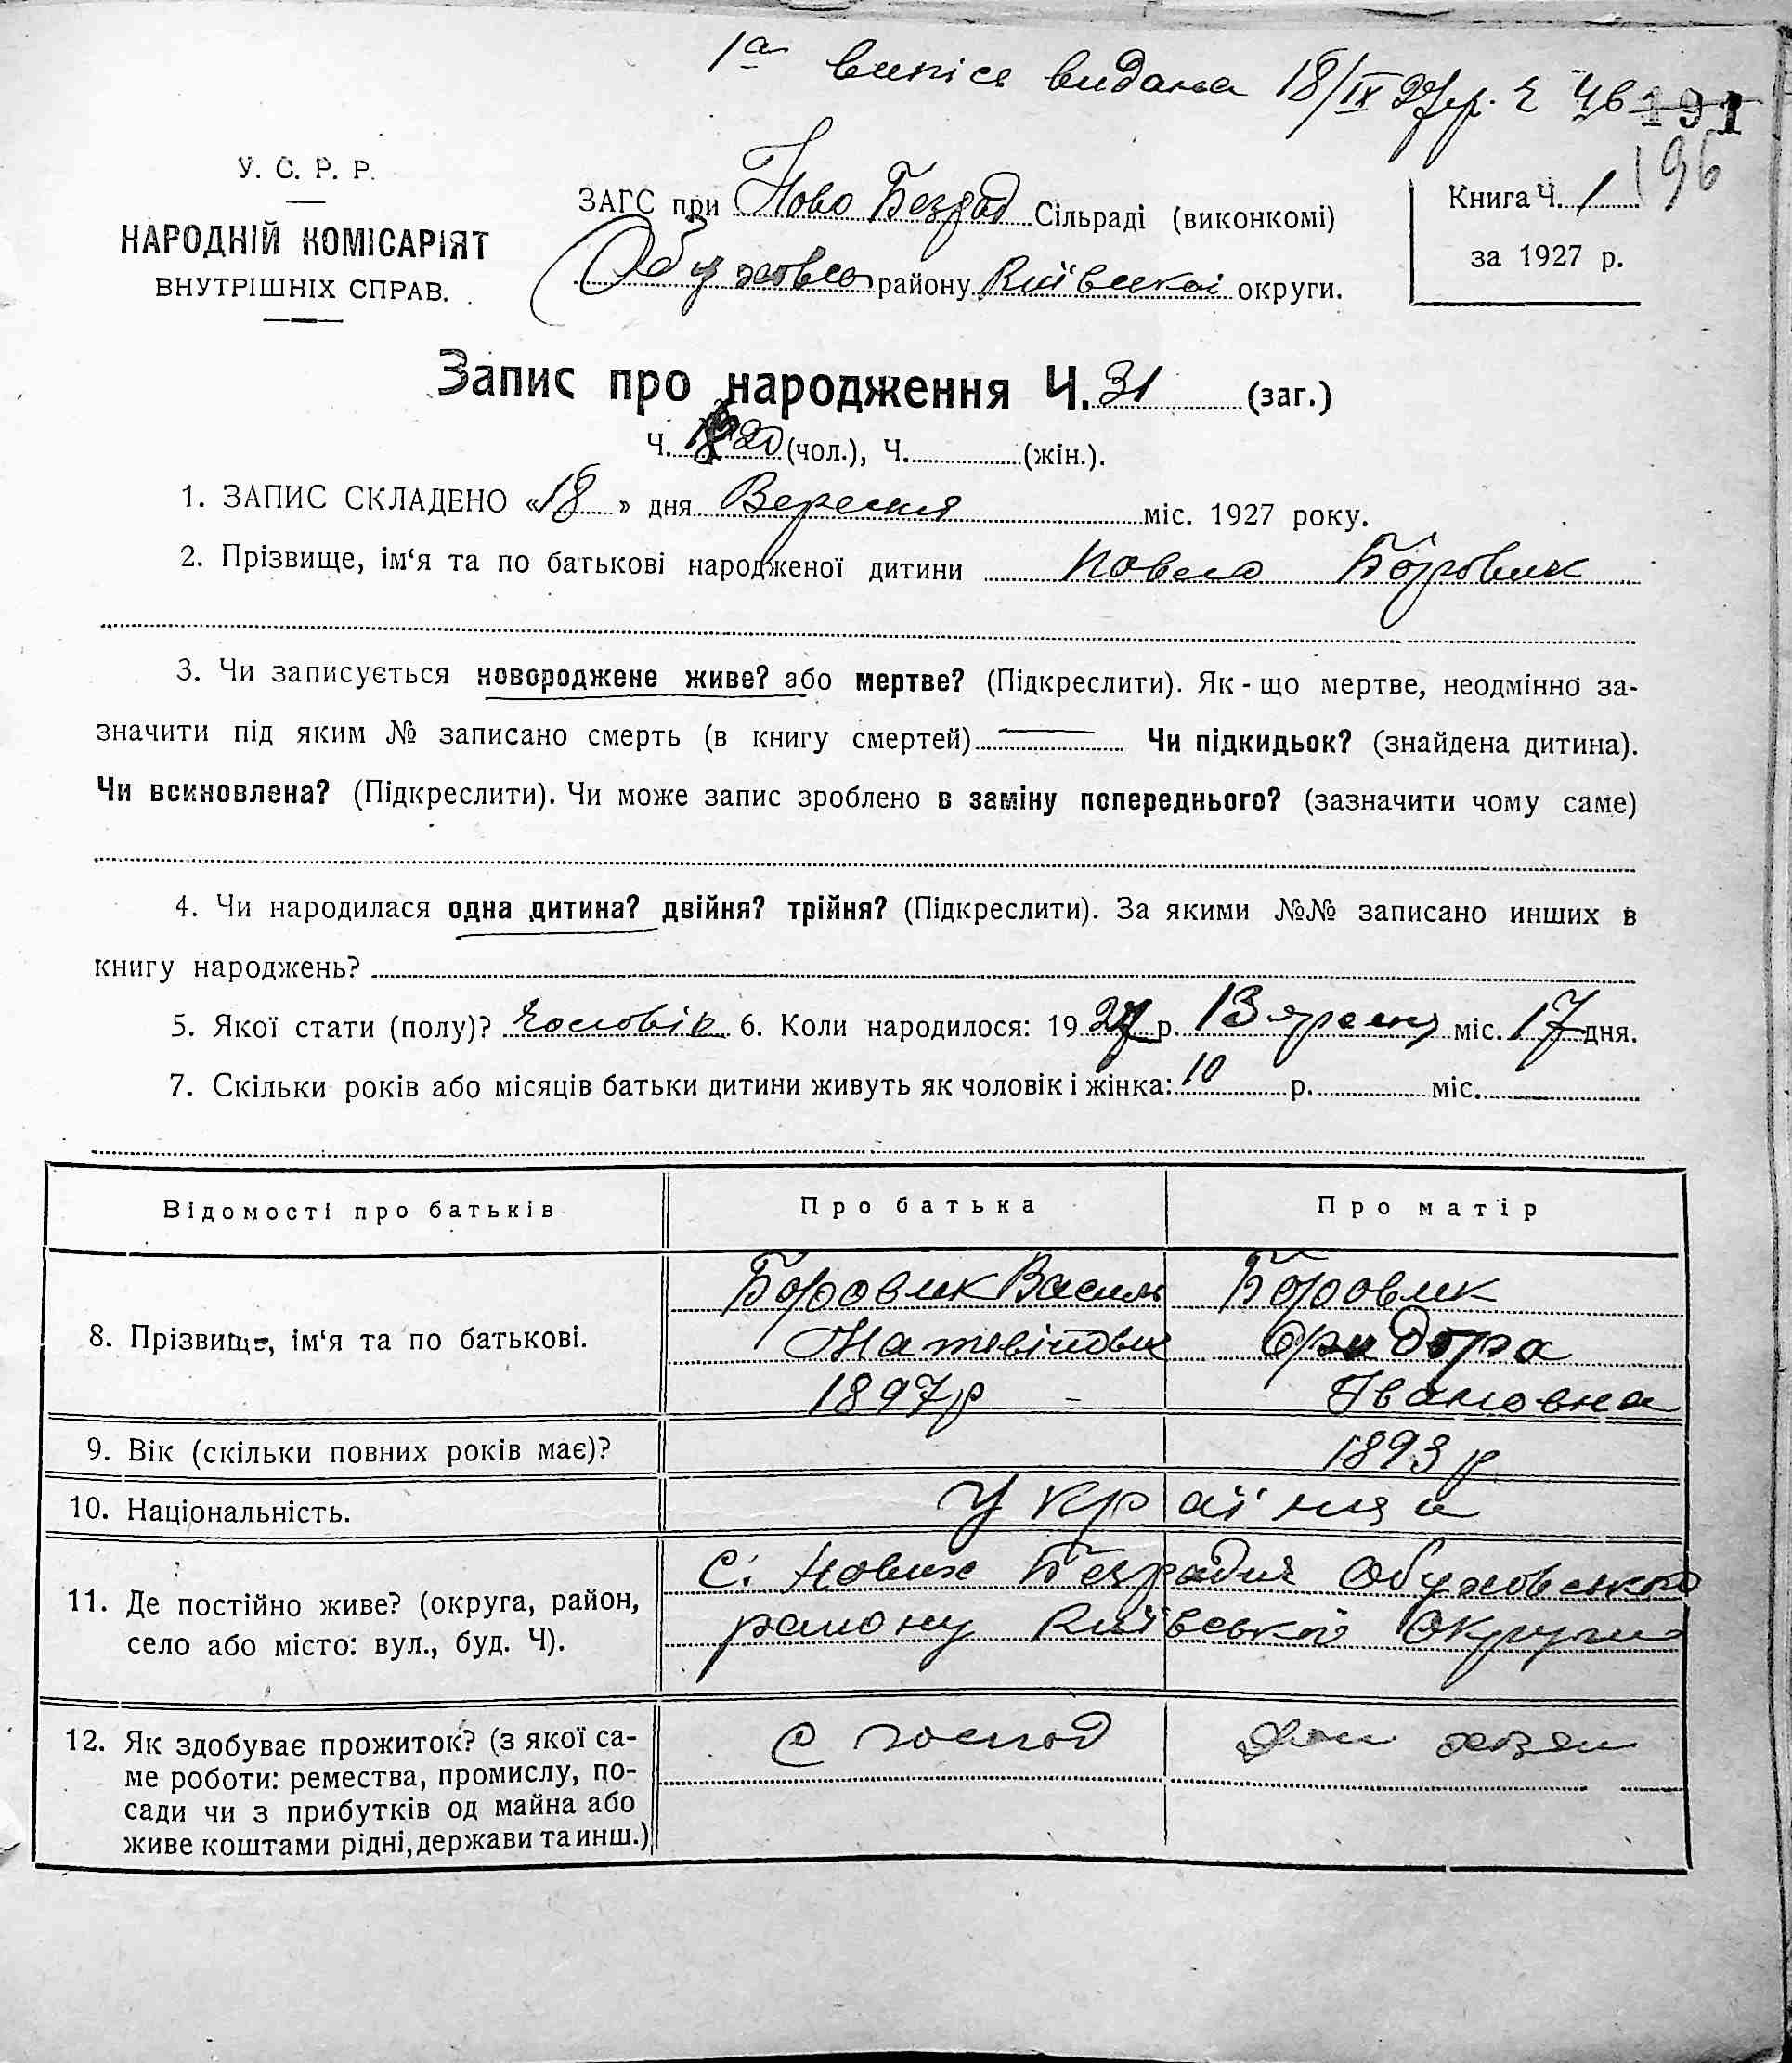 1а випіс видана 18/IX 27 р. 191
196
У. С. Р. Р.
НАРОДНІЙ КОМІСАРІЯТ
ВНУТРІШНІХ СПРАВ.
ЗАГС при Ново Безрад Сільраді (виконкомі)
району Київської округи.
Книга Ч. 1
за 1927 р.
Запис про народження Ч. 31 (заг.)
Ч. 20 (чол.), Ч. (жін.).
1. ЗАПИС СКЛАДЕНО «18» дня Вересня міс. 1927 року.
2. Прізвище, ім‘я та по батькові народженої дитини Павло Боровик
3. Чи записується новороджене живе? або мертве? (Підкреслити). Як-що мертве, неодмінно за-
значити під яким № записано смерть (в книгу смертей) Чи підкидьок? (знайдена дитина).
Чи всиновлена? (Підкреслити). Чи може запис зроблено в заміну попереднього? (зазначити чому саме)
4. Чи народилася одна дитина? двійня? трійня? (Підкреслити). За якими №№ записано инших в
книгу народжень?
5. Якої стати (полу)? Чоловік 6. Коли народилося: 1927 р. Вересня міс. 17 дня.
7. Скільки років або місяців батьки дитини живуть як чоловік і жінка: 10 р. міс.
Відомості про батьків Про батька Про матір
8. Прізвище, ім‘я та по батькові.
Боровик Василь
Матвійович
1897 р
Боровик
Івановна
9. Вік (скільки повних років має)? 1893 р
10. Національність. Україниа
11. Де постійно живе? (округа, район,
село або місто: вул., буд. Ч).
С. Нових Безрадич Обуховського
району Київської Округи
12. Як здобуває прожиток? (з якої са-
ме роботи: ремества, промислу, по-
сади чи з прибутків од майна або
живе коштами рідні, держави та инш.)
С господ
Дом хозяй